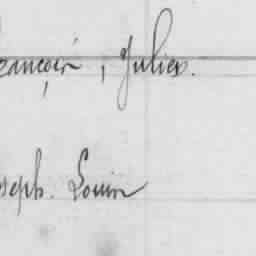 rançois, Julien.
oseph. Louis